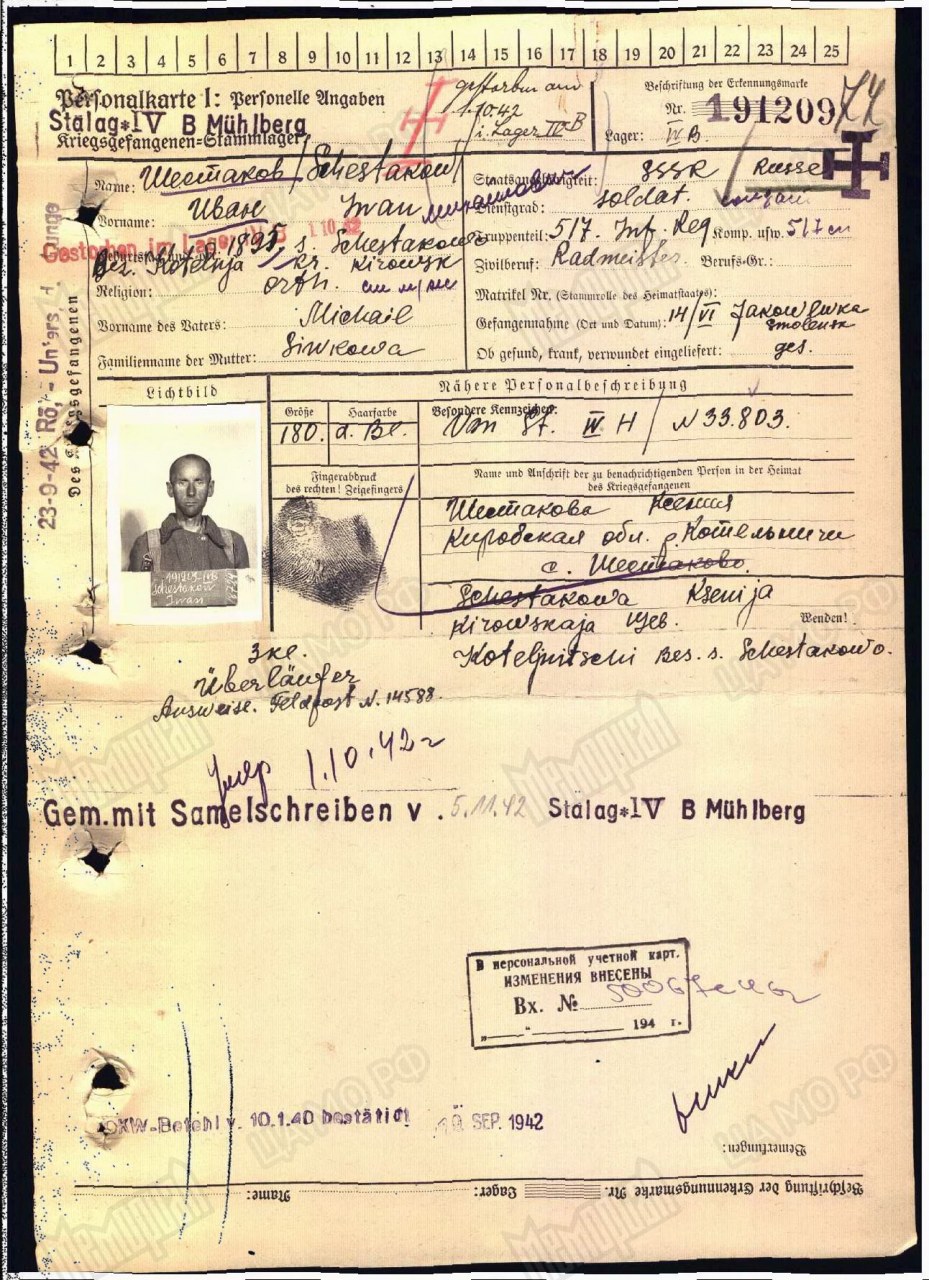 1 2 3 4 5 6 7 8 9 10 11 12 13 14 15 16 17 18 19 20 21 22 23 24 25
Personalkarte I: Personelle Angaben
Stalag*IV B Mühlberg
Kriegsgefangenen=Stammlager
gestorben am
1.10.42
i. Lager IV B
Beschriftung der Erkennungsmarke
Nr. 191209
Lager: IV B.
Name: Шестаков / Schestakow
Vorname: Иван Iwan
Gestorben im Lager IV B 1.10.42
1895. s. Schestakowo
Bez. Kotelnja kr. Kirowsk
Religion: orth.
Vorname des Vaters: Michail
Familienname der Mutter: Siwkowa
Staatsangehörigkeit: SSSR Russe
Dienstgrad: soldat.
Truppenteil: 517. Inf. Reg. Komp. usw. 517
Zivilberuf: Radmeister Berufs-Gr.:
Matrikel Nr. (Stammrolle des Heimatstaates):
Gefangennahme (Ort und Datum): 14/VI Jakowlewka
Smolensk
Ob gesund, krank, verwundet eingeliefert: ges.
23-9-42 Rö,- Unters.
Des Kriegsgefangenen
Lichtbild
Nähere Personalbeschreibung
Größe Haarfarbe Besondere Kennzeichen:
180. d. Bl. Von St. IV H / N 33.803.
Fingerabdruck
des rechten! Zeigefingers
Name und Anschrift der zu benachrichtigenden Person in der Heimat
des Kriegsgefangenen
Шестакова Ксения
Кировская обл. р. Котельничи
с. Шестаково.
Schestakowa Ksenija
Kirowskaja Geb.
Wenden!
Kotelnitschi Bes. s. Schestakowo.
191209 IVB
Schestakow
Iwan
Überläufer
Ausweise. Feldpost N. 14588
1.10.42 г
Gem. mit Samelschreiben v. 5.11.42 Stalag*IV B Mühlberg
В персональной учетной карт.
ИЗМЕНЕНИЯ ВНЕСЕНЫ
Вх. №
„ “ 194 г.
OKW-Befehl v. 10.1.40 bestätigt SEP. 1942
Bemerkungen:
Name: Lager: Beschriftung der Erkennungsmarke Nr.
Мемориал
ЦАМО РФ